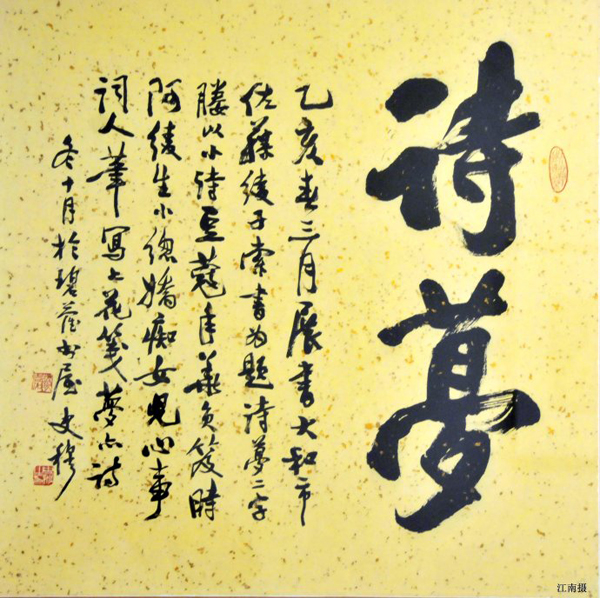 詩夢
乙亥春三月展書大和市
佐藤綾子索書为題詩夢二字
媵以小詩豆蔻年華負笈時
阿綾生小總嬌痴女兒心事
詞人筆寫上花箋夢亦詩
冬十月於碧書屋史穆
江南摄